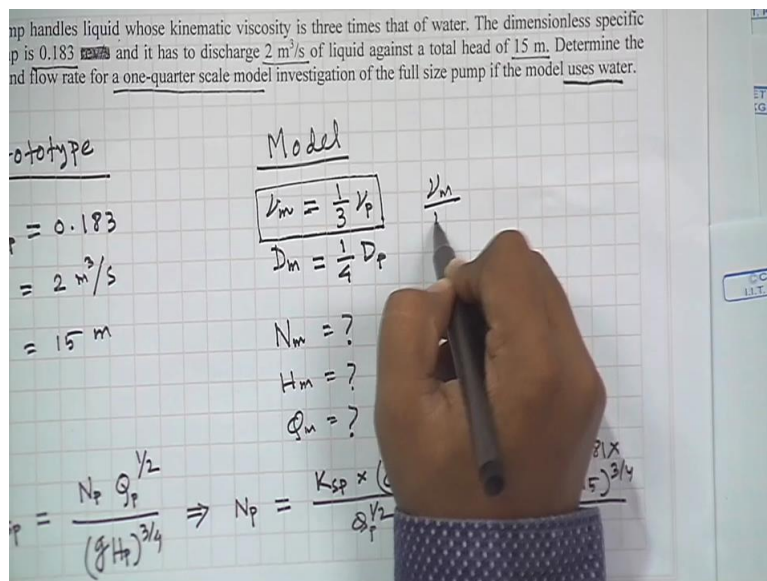 mp handles liquid whose kinematic viscosity is three times that of water. The dimensionless specific
p is 0.183 and it has to discharge 2 m³/s of liquid against a total head of 15 m. Determine the
nd flow rate for a one-quarter scale model investigation of the full size pump if the model uses water.
ototype
Model
= 0.183
= 2 m³/s
= 15 m
ν_m = 1/3 ν_p
ν_m
D_m = 1/4 D_p
N_m = ?
H_m = ?
Q_m = ?
p = N_p Q_p^1/2 / (gH_p)^3/4 ⇒ N_p = K_sp × ( 81 × 5)^3/4 / Q_p^1/2
I.I.T.